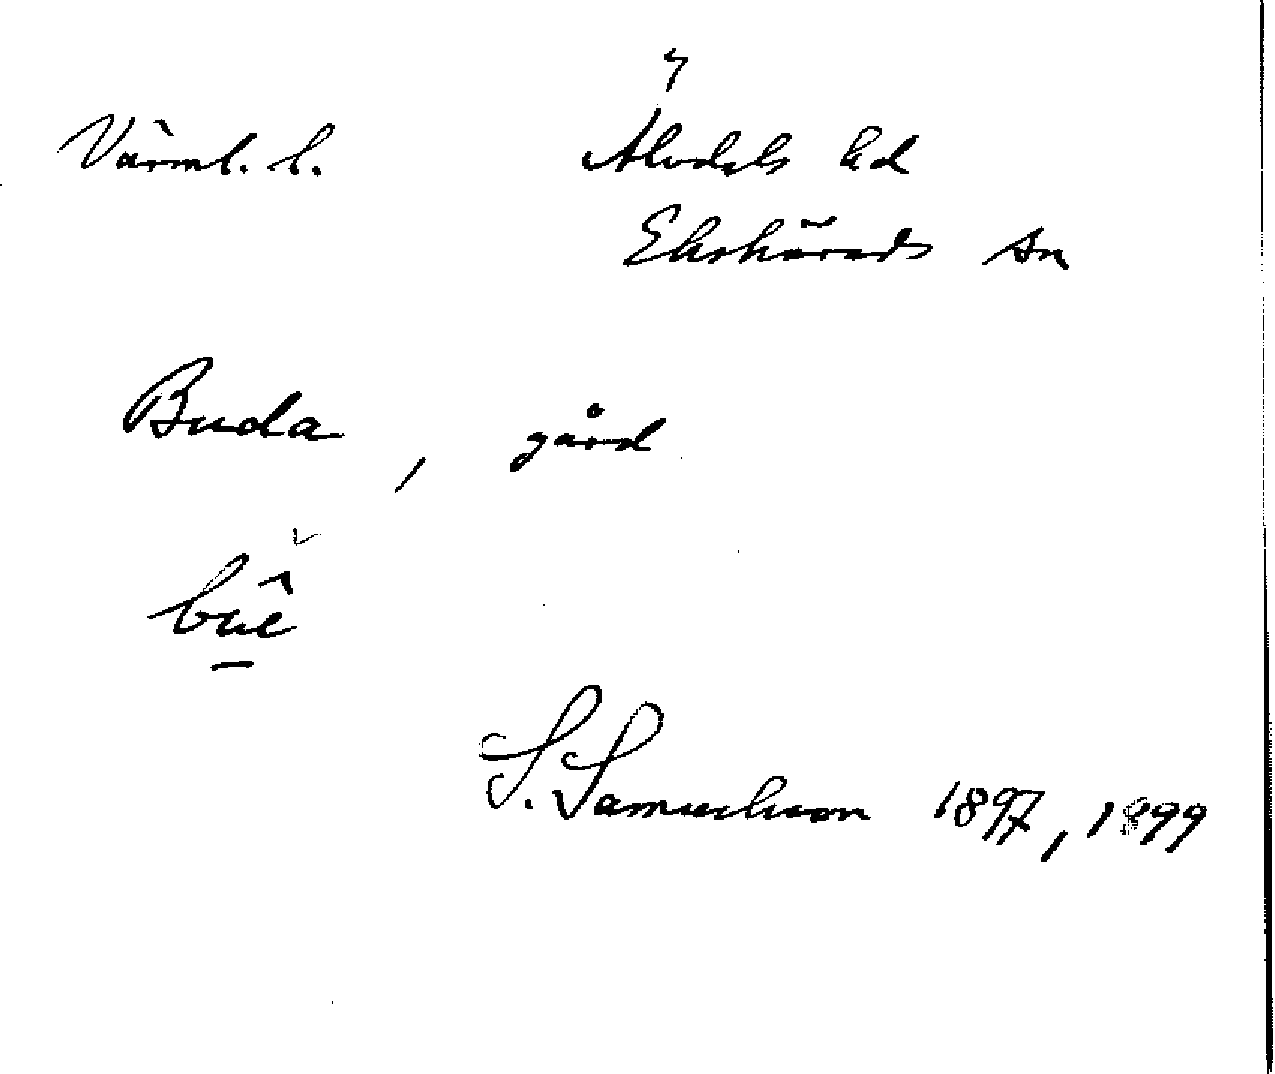 7
Värml. l. Älvdals hd
Ekshärads sn
Buda, gård
buê
S. Samuelsson 1897, 1899